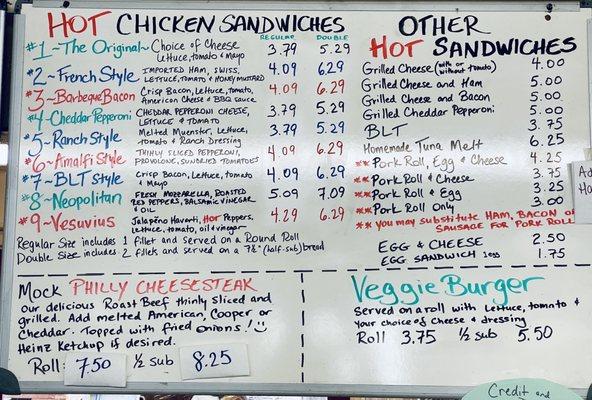 HOT CHICKEN SANDWICHES
REGULAR DOUBLE
#1~The Original~ Choice of Cheese 3.79 5.29
Lettuce, tomato & Mayo
#2~French Style IMPORTED HAM, SWISS, 4.09 6.29
LETTUCE, TOMATO & HONEY MUSTARD
#3~Barbeque Bacon Crisp Bacon, Lettuce, tomato, 4.09 6.29
American Cheese & BBQ sauce
#4~Cheddar Pepperoni CHEDDAR PEPPERONI CHEESE, 3.79 5.29
LETTUCE & TOMATO
#5~Ranch Style Melted Muenster, Lettuce, 3.79 5.29
tomato & Ranch Dressing
#6~Amalfi Style THINLY SLICED PEPPERONI, 4.09 6.29
PROVOLONE, SUNDRIED TOMATOES
#7~BLT Style Crisp Bacon, Lettuce, tomato 4.09 6.29
& Mayo
#8~Neopolitan FRESH MOZZARELLA, ROASTED 5.09 7.09
RED PEPPERS, BALSAMIC VINEGAR
& OIL
#9~Vesuvius Jalapeño Havarti, Hot Peppers, 4.29 6.29
Lettuce, tomato, oil & vinegar
Regular Size includes 1 fillet and Served on a Round Roll
Double Size includes 2 fillets and Served on a 7½" (half-sub) bread
OTHER
HOT SANDWICHES
Grilled Cheese (with or without tomato) 4.00
Grilled Cheese and Ham 5.00
Grilled Cheese and Bacon 5.00
Grilled Cheddar Pepperoni 5.00
BLT 3.75
Homemade Tuna Melt 6.25
**Pork Roll, Egg & Cheese 4.25
**Pork Roll & Cheese 3.75
**Pork Roll & Egg 3.25
**Pork Roll Only 3.00
**YOU MAY SUBSTITUTE HAM, BACON OR
SAUSAGE FOR PORK ROLL
EGG & CHEESE 2.50
EGG SANDWICH 1 egg 1.75
Mock PHILLY CHEESESTEAK
Our delicious Roast Beef thinly sliced and
grilled. Add melted American, Cooper or
Cheddar. Topped with fried onions!
Heinz Ketchup if desired.
Roll: 7.50 ½ sub 8.25
Veggie Burger
Served on a roll with Lettuce, tomato &
your choice of cheese & dressing
Roll 3.75 ½ sub 5.50
Credit and